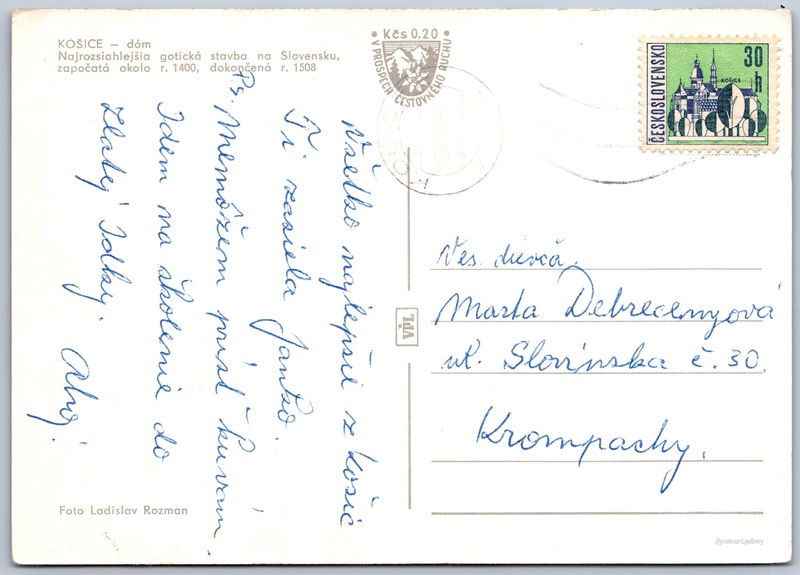 KOŠICE – dóm
Najrozsiahlejšia gotická stavba na Slovensku,
započatá okolo r. 1400, dokončená r. 1508
Kčs 0.20
V PROSPECH CESTOVNÉHO RUCHU
ČESKOSLOVENSKO
30
h
KOŠICE
Všetko najlepšie z Košic
Ti zasiela Janko.
Ps. Nemôžem prísť kuvám.
Idem na školenie do
Zlatej Idky. Ahoj.
VPL
Ves. dievča.
Marta Debrecenyová
ul. Slovinska č. 30.
Krompachy.
Foto Ladislav Rozman
@postcard.gallery